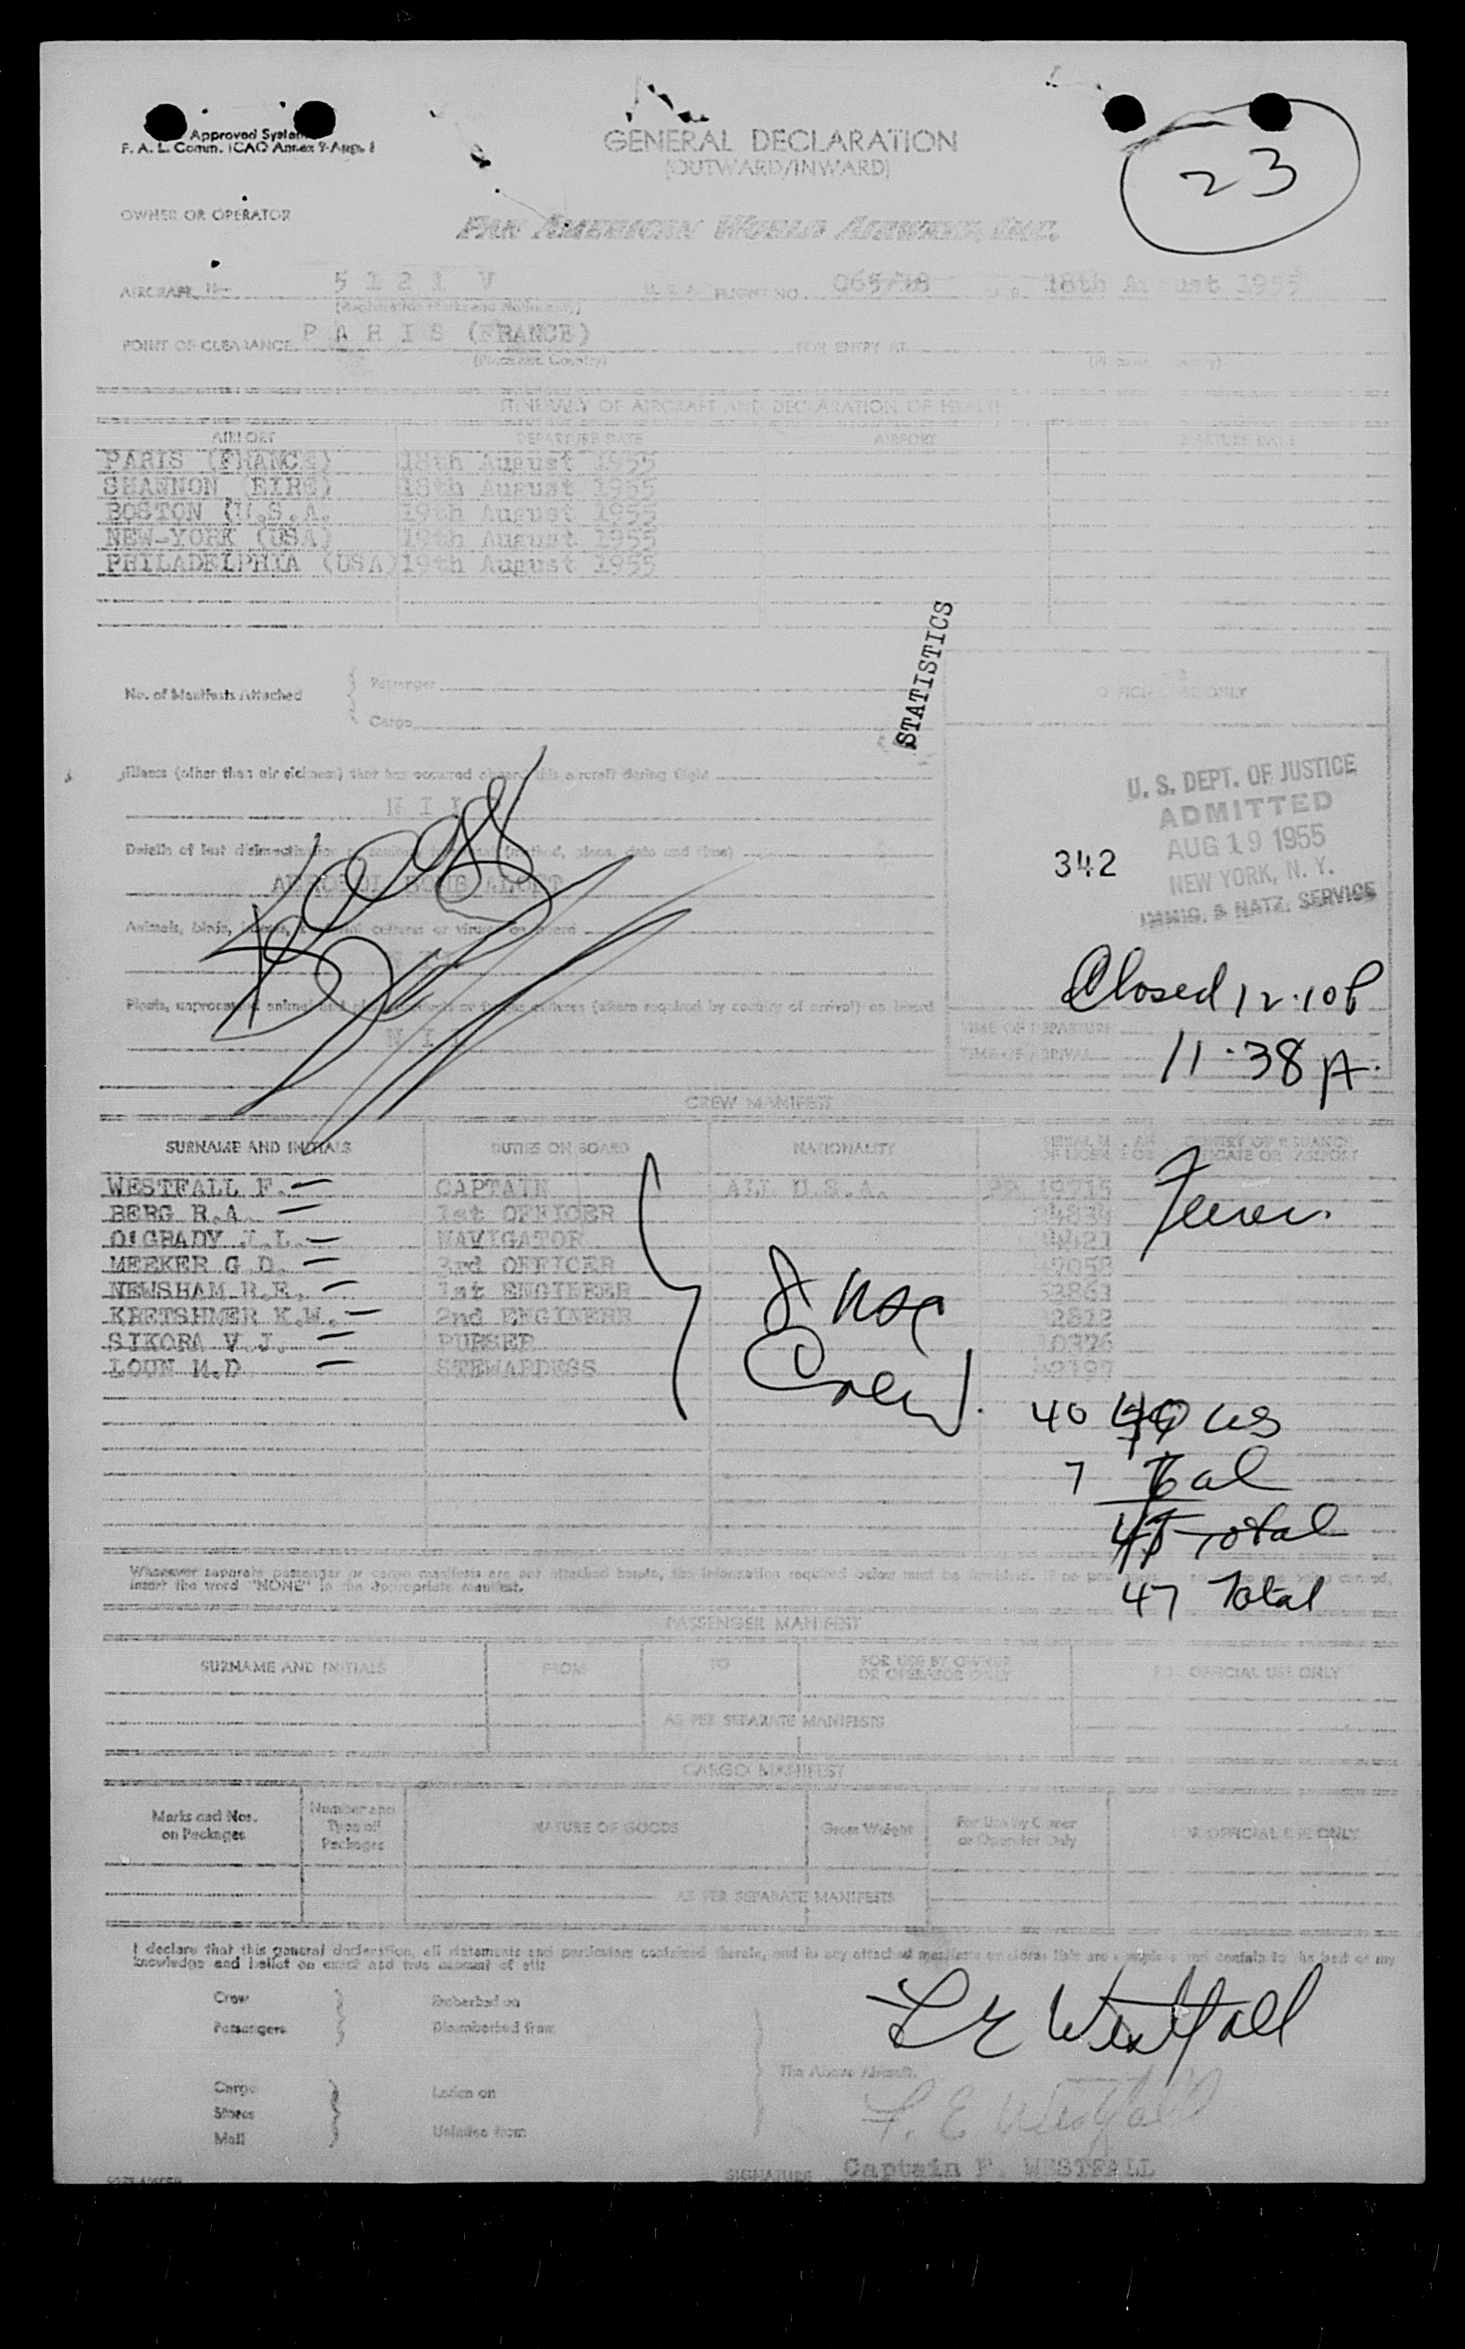 Approved System
F. A. L. Comm. ICAO Annex 9-App. 1
GENERAL DECLARATION
(OUTWARD/INWARD)
23
OWNER OR OPERATOR
PAN AMERICAN WORLD AIRWAYS, INC.
AIRCRAFT 5121 V U.S.A. FLIGHT NO. 065/18 18th August 1955
(Registration Marks and Nationality)
POINT OF CLEARANCE PARIS (FRANCE) FOR ENTRY AT
(Place and Country)
ITINERARY OF AIRCRAFT AND DECLARATION OF HEALTH
AIRPORT DEPARTURE DATE AIRPORT DEPARTURE DATE
PARIS (FRANCE) 18th August 1955
SHANNON (EIRE) 18th August 1955
BOSTON (U.S.A. 19th August 1955
NEW-YORK (USA) 19th August 1955
PHILADELPHIA (USA) 19th August 1955
STATISTICS
No. of Manifests Attached
Passenger
Cargo
OFFICIAL USE ONLY
Illness (other than air sickness) that has occured aboard this aircraft during flight
NIL
U. S. DEPT. OF JUSTICE
ADMITTED
AUG 19 1955
NEW YORK, N. Y.
IMMIG. & NATZ. SERVICE
342
Details of last disinsectisation (method, place, date and time)
AEROSOL BOMB ALOFT
Animals, birds, insects, cultures or viruses on board
Plants, (where required by country of arrival) on board
NIL
Closed 12.10P
TIME OF DEPARTURE
TIME OF ARRIVAL
11.38 A.
CREW MANIFEST
SURNAME AND INITIALS DUTIES ON BOARD NATIONALITY
WESTFALL F. CAPTAIN ALL U.S.A. 19715
BERG R.A. 1st OFFICER
O'GRADY J.L. NAVIGATOR
MEEKER G.D. 3rd OFFICER
NEWSHAM R.E. 1st ENGINEER
KRETSHMER K.W. 2nd ENGINEER
SIKORA V.J. PURSER
LOUN M.D. STEWARDESS
8 usa
Crew.
40 US
7 al
Total
47 Total
Whenever separate passenger or cargo manifests are not attached hereto, the information required below must be furnished.
insert the word "NONE" in the appropriate manifest.
PASSENGER MANIFEST
SURNAME AND INITIALS FROM TO FOR USE BY OWNER OR OPERATOR ONLY FOR OFFICIAL USE ONLY
AS PER SEPARATE MANIFESTS
CARGO MANIFEST
Marks and Nos. on Packages Number and Type of Packages NATURE OF GOODS Gross Weight For Use by Owner or Operator Only FOR OFFICIAL USE ONLY
AS PER SEPARATE MANIFESTS
I declare that this general declaration, all statements and particulars contained therein, and in any attached manifests
knowledge and belief an exact and true account of all:
Crew Embarked on
Passengers Disembarked from
F E Westfall
The Above Aircraft.
Cargo Laden on
Stores
Mail Unladen from
F. E. Westfall
SIGNATURE Captain F. WESTFALL